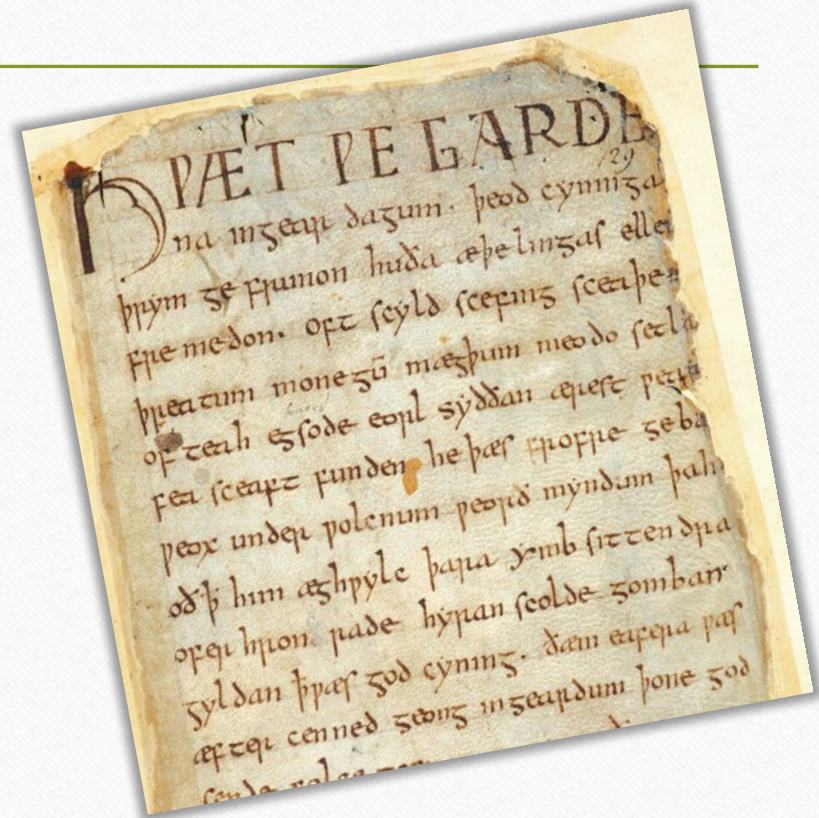 HǷÆT ǷE GARDE
129
na ingear dagum. þeod cyninga
þrym ge frunon huða æþelingas elle
fre medon. oft scyld scefing sceaþe
þreatum monegū mægþum meodo setla
of teah egsode eorl syððan ærest ƿear
fea sceaft funden he þæs frofre geba
ƿeox under ƿolcnum ƿeorð myndum þah
oð ꝥ him æghƿylc þara ymb sittendra
ofer hron rade hyran scolde gomban
gyldan þƿæs god cyning. ðæm eafera ƿæs
æfter cenned geong ingeardum þone god
sende folce